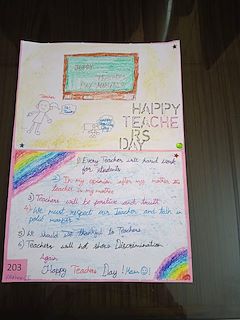 Happy
Teachers
Day Mam
Teacher
HAPPY
TEACHE
RS
DAY
1) Every Teacher will hard work
for students
2) In my opinion after my mother
teacher is my mother
3) Teachers will be positive and truth
4) We must respect our Teacher and talk in
polid manner
5) We should be thanked to Teachers
6) Teachers will not shows Discrimination
Again
Happy Teachers Day ! Mam
203